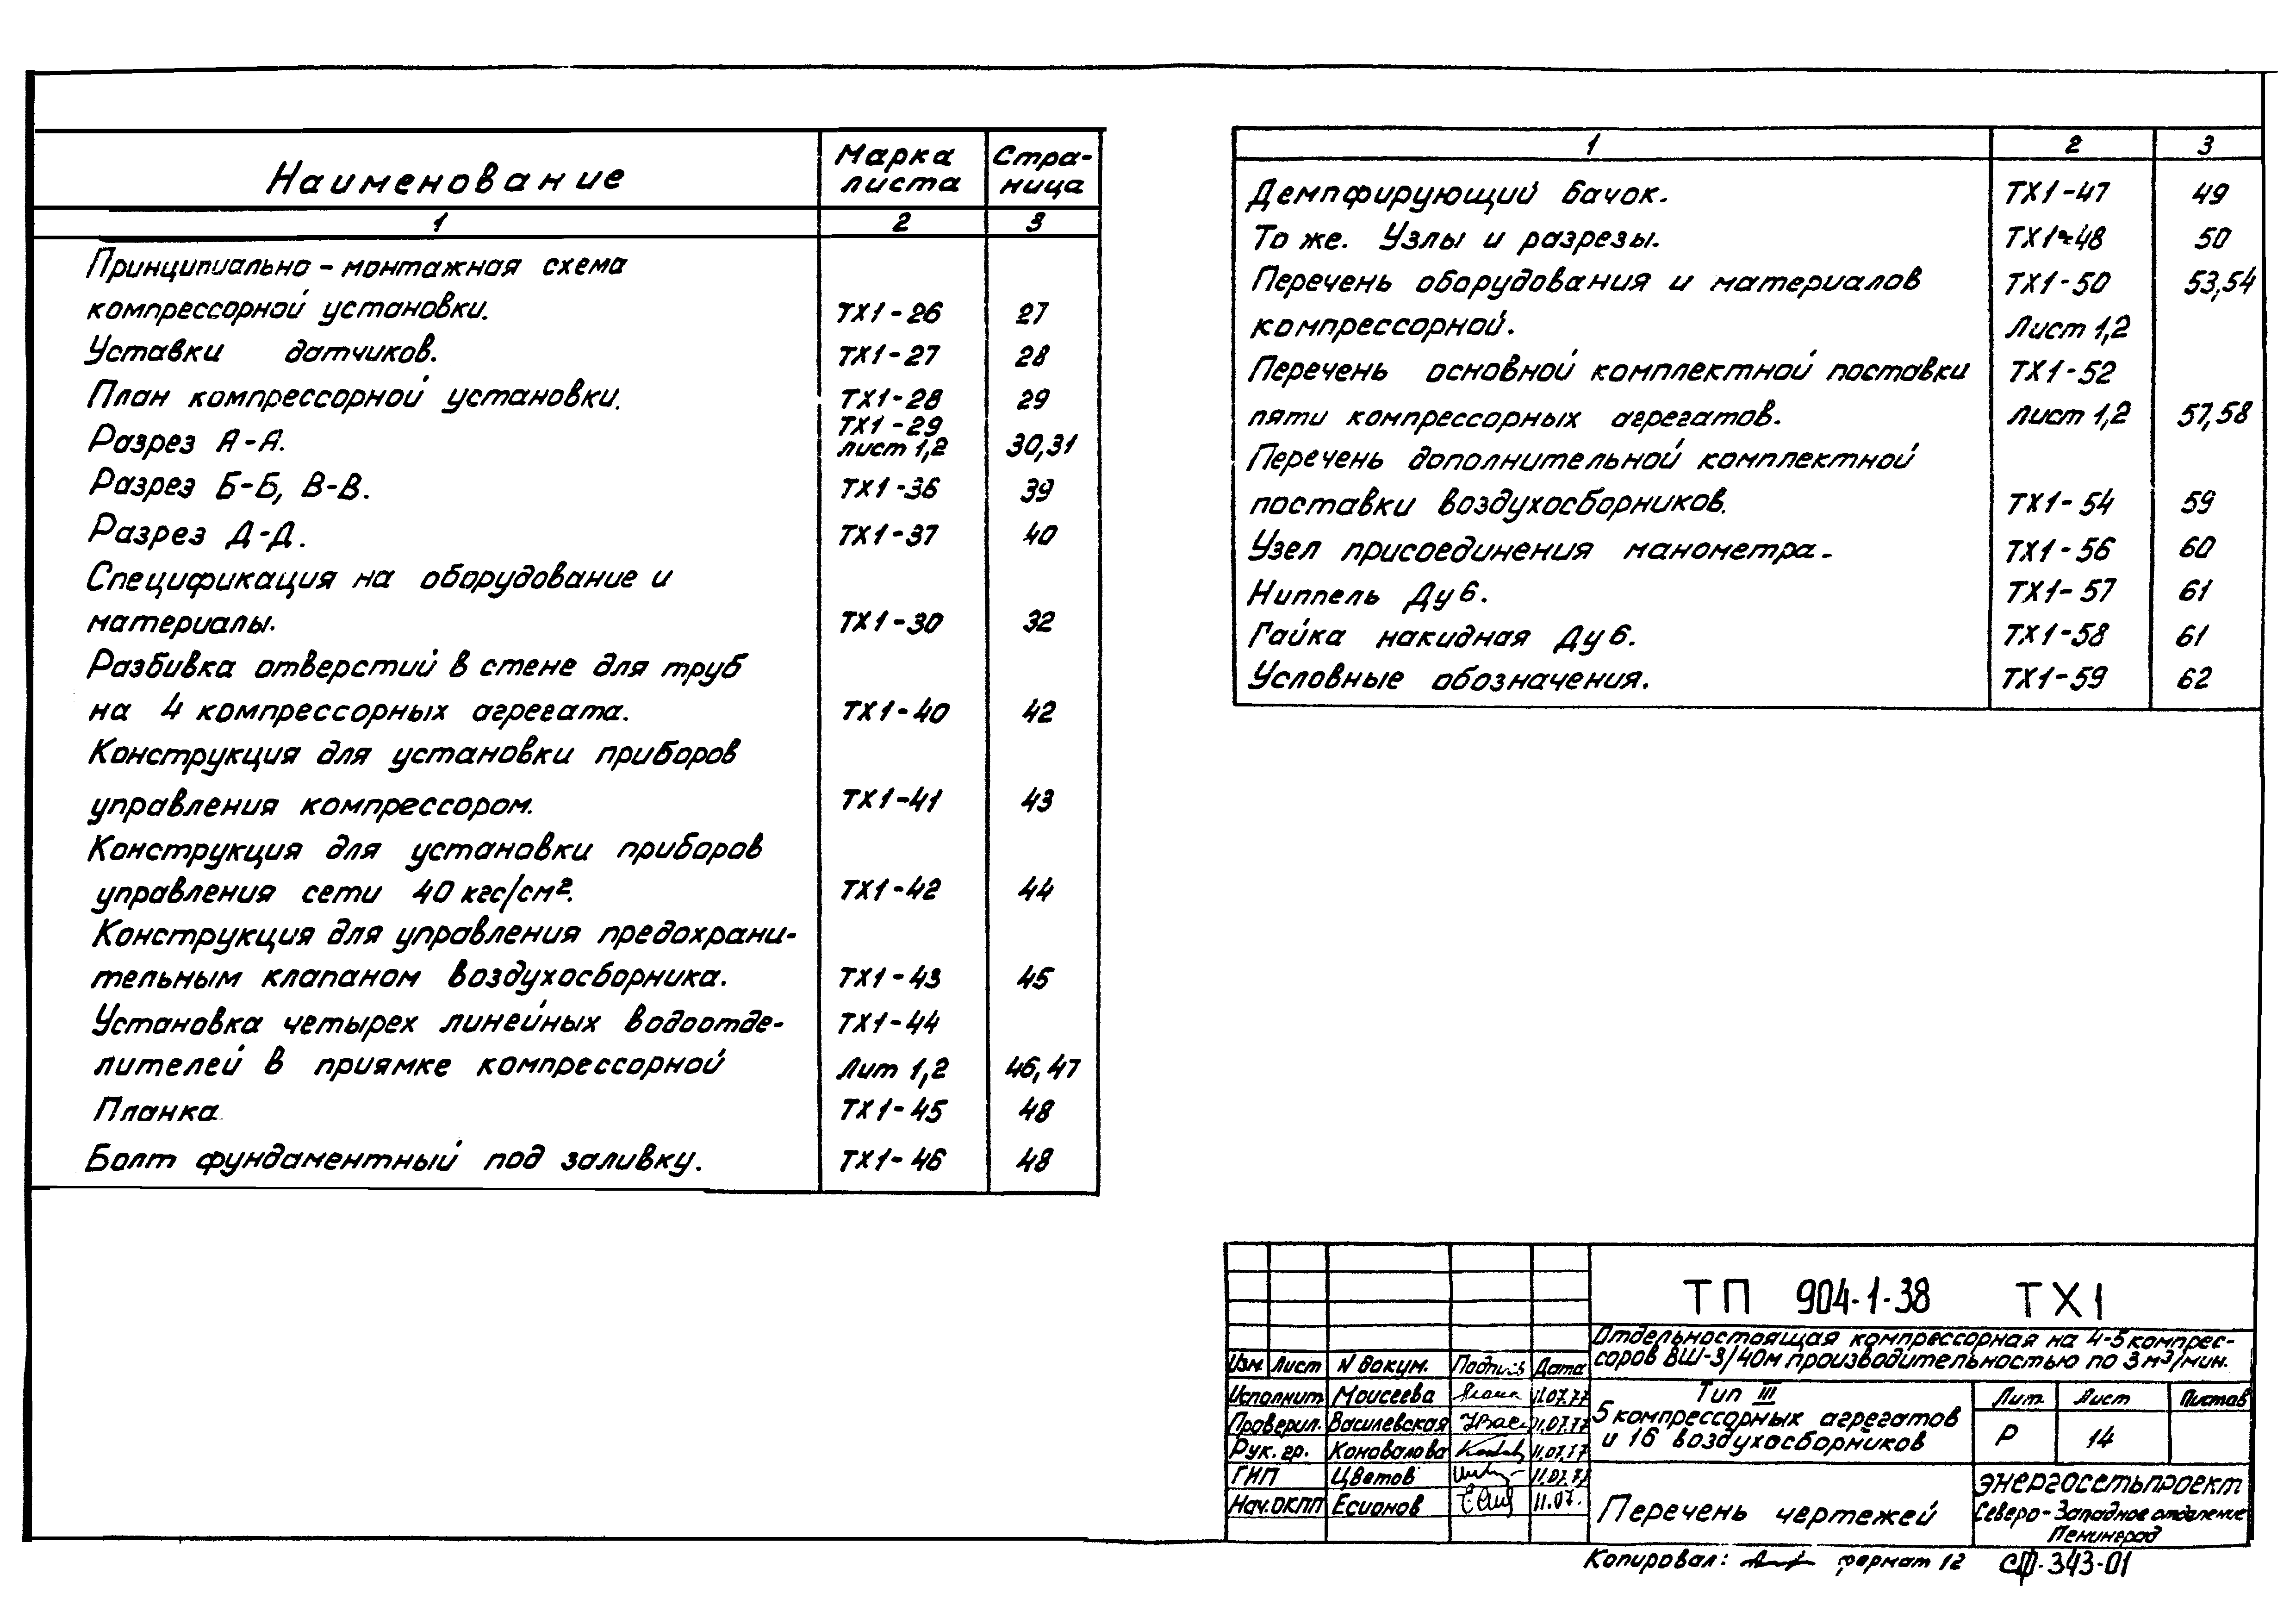 Наименование Марка листа Стра-ница
1 2 3
Принципиально - монтажная схема
компрессорной установки. ТХ1-26 27
Уставки датчиков. ТХ1-27 28
План компрессорной установки. ТХ1-28 29
ТХ1-29
Разрез А-А. лист 1,2 30,31
Разрез Б-Б, В-В. ТХ1-36 39
Разрез Д-Д. ТХ1-37 40
Спецификация на оборудование и
материалы. ТХ1-30 32
Разбивка отверстий в стене для труб
на 4 компрессорных агрегата. ТХ1-40 42
Конструкция для установки приборов
управления компрессором. ТХ1-41 43
Конструкция для установки приборов
управления сети 40 кгс/см². ТХ1-42 44
Конструкция для управления предохрани-
тельным клапаном воздухосборника. ТХ1-43 45
Установка четырех линейных водоотде- ТХ1-44
лителей в приямке компрессорной Лит 1,2 46,47
Планка ТХ1-45 48
Болт фундаментный под заливку. ТХ1-46 48
1 2 3
Демпфирующий бачок. ТХ1-47 49
То же. Узлы и разрезы. ТХ1-48 50
Перечень оборудования и материалов ТХ1-50 53,54
компрессорной. Лист 1,2
Перечень основной комплектной поставки ТХ1-52
пяти компрессорных агрегатов. Лист 1,2 57,58
Перечень дополнительной комплектной
поставки воздухосборников. ТХ1-54 59
Узел присоединения манометра. ТХ1-56 60
Ниппель Ду 6. ТХ1-57 61
Гайка накидная Ду 6. ТХ1-58 61
Условные обозначения. ТХ1-59 62
ТП 904-1-38 ТХ1
Отдельностоящая компрессорная на 4-5 компрес-
соров ВШ-3/40м производительностью по 3 м³/мин.
Изм. Лист N докум. Подпись Дата
Исполнит. Моисеева 11.07.77
Проверил. Василевская 11.07.77
Рук. гр. Коновалова 11.07.77
ГИП Цветов 11.07.77
Нач.ОКПП Есионов 11.07.
Тип III
5 компрессорных агрегатов
и 16 воздухосборников
Лит. Лист Листов
Р 14
Перечень чертежей
Энергосетьпроект
Северо-Западное отделение
Ленинград
Копировал: формат 12 СФ.343-01